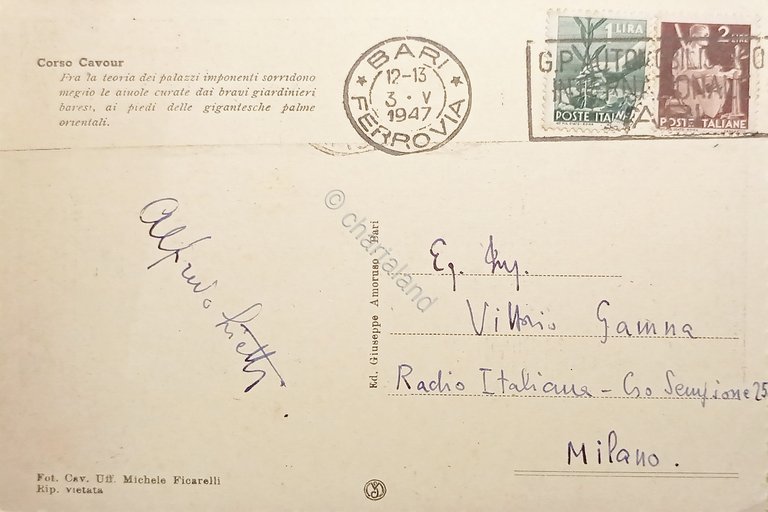 Corso Cavour
Fra la teoria dei palazzi imponenti sorridono
meglio le aiuole curate dai bravi giardinieri
baresi, ai piedi delle gigantesche palme
orientali.
BARI
12-13
3 · V
1947
FERROVIA
1 LIRA
POSTE ITALIANE
2 LIRE
POSTE ITALIANE
© chartaland
Alfredo
Ed. Giuseppe Amoruso Bari
Eg. Ing.
Vittorio Gamna
Radio Italiana - Cso Sempione 25
Milano.
Fot. Cav. Uff. Michele Ficarelli
Rip. vietata